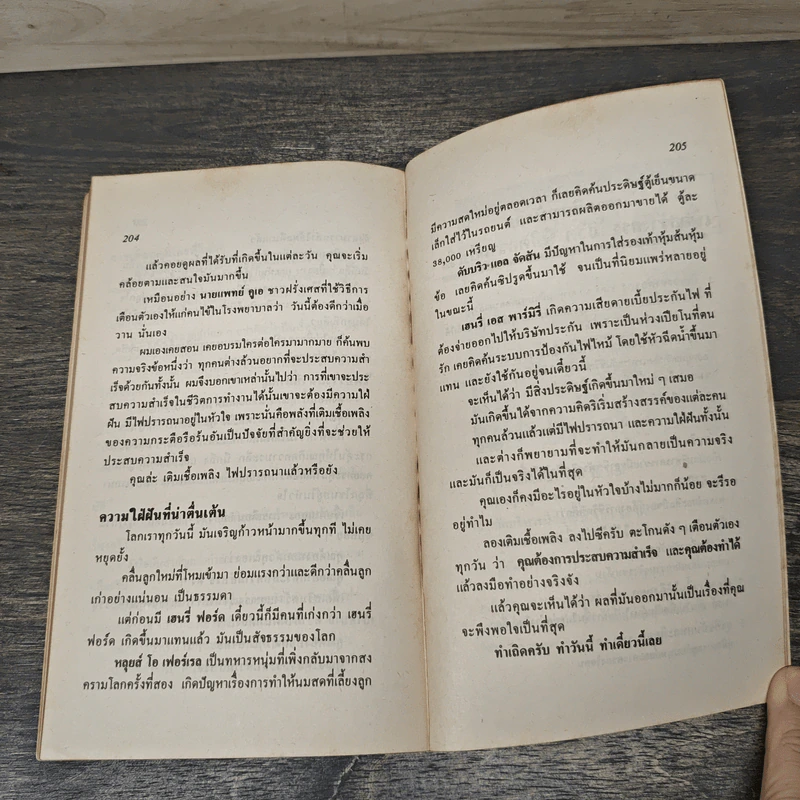 204
แล้วคอยดูผลที่ได้รับที่เกิดขึ้นในแต่ละวัน คุณจะเริ่ม
คล้อยตามและสนใจมันมากขึ้น
เหมือนอย่าง นายแพทย์ คูเอ ชาวฝรั่งเศสที่ใช้วิธีการ
เตือนตัวเองให้แก่คนไข้ในโรงพยาบาลว่า วันนี้ต้องดีกว่าเมื่อ
วาน นั่นเอง
ผมเองเคยสอน เคยอบรมใครต่อใครมามากมาย ก็ค้นพบ
ความจริงข้อหนึ่งว่า ทุกคนต่างล้วนอยากที่จะประสบความสำ
เร็จด้วยกันทั้งนั้น ผมจึงบอกเขาเหล่านั้นไปว่า การที่เขาจะประ
สบความสำเร็จในชีวิตการทำงานได้นั้นเขาจะต้องมีความใฝ่
ฝัน มีไฟปรารถนาอยู่ในหัวใจ เพราะนั่นคือพลังที่เติมเชื้อเพลิง
ของความกระตือรือร้นอันเป็นปัจจัยที่สำคัญยิ่งที่จะช่วยให้
ประสบความสำเร็จ
คุณล่ะ เติมเชื้อเพลิง ไฟปรารถนาแล้วหรือยัง
ความใฝ่ฝันที่น่าตื่นเต้น
โลกเราทุกวันนี้ มันเจริญก้าวหน้ามากขึ้นทุกที ไม่เคย
หยุดยั้ง
คลื่นลูกใหม่ที่โหมเข้ามา ย่อมแรงกว่าและดีกว่าคลื่นลูก
เก่าอย่างแน่นอน เป็นธรรมดา
แต่ก่อนมี เฮนรี่ ฟอร์ด เดี๋ยวนี้ก็มีคนที่เก่งกว่า เฮนรี่
ฟอร์ด เกิดขึ้นมาแทนแล้ว มันเป็นสัจธรรมของโลก
หลุยส์ โอ เฟอร์เรล เป็นทหารหนุ่มที่เพิ่งกลับมาจากสง
ครามโลกครั้งที่สอง เกิดปัญหาเรื่องการทำให้นมสดที่เลี้ยงลูก
205
มีความสดใหม่อยู่ตลอดเวลา ก็เลยคิดค้นประดิษฐ์ตู้เย็นขนาด
เล็กใส่ไว้ในรถยนต์ และสามารถผลิตออกมาขายได้ ตู้ละ
38,000 เหรียญ
ดับบริว แอล จัดสัน มีปัญหาในการใส่รองเท้าหุ้มส้นหุ้ม
ข้อ เลยคิดค้นซิปรูดขึ้นมาใช้ จนเป็นที่นิยมแพร่หลายอยู่
ในขณะนี้
เฮนรี่ เอส พาร์มิรี่ เกิดความเสียดายเบี้ยประกันไฟ ที่
ต้องจ่ายออกไปให้บริษัทประกัน เพราะเป็นห่วงเปียโนที่ตน
รัก เคยคิดค้นระบบการป้องกันไฟไหม้ โดยใช้หัวฉีดน้ำขึ้นมา
แทน และยังใช้กันอยู่จนเดี๋ยวนี้
จะเห็นได้ว่า มีสิ่งประดิษฐ์เกิดขึ้นมาใหม่ ๆ เสมอ
มันเกิดขึ้นได้จากความคิดริเริ่มสร้างสรรค์ของแต่ละคน
ทุกคนล้วนแล้วแต่มีไฟปรารถนา และความใฝ่ฝันทั้งนั้น
และต่างก็พยายามที่จะทำให้มันกลายเป็นความจริง
และมันก็เป็นจริงได้ในที่สุด
คุณเองก็คงมีอะไรอยู่ในหัวใจบ้างไม่มากก็น้อย จะรีรอ
อยู่ทำไม
ลองเติมเชื้อเพลิง ลงไปซีครับ ตะโกนดัง ๆ เตือนตัวเอง
ทุกวัน ว่า คุณต้องการประสบความสำเร็จ และคุณต้องทำได้
แล้วลงมือทำอย่างจริงจัง
แล้วคุณจะเห็นได้ว่า ผลที่มันออกมานั้นเป็นเรื่องที่คุณ
จะพึงพอใจเป็นที่สุด
ทำเถิดครับ ทำวันนี้ ทำเดี๋ยวนี้เลย